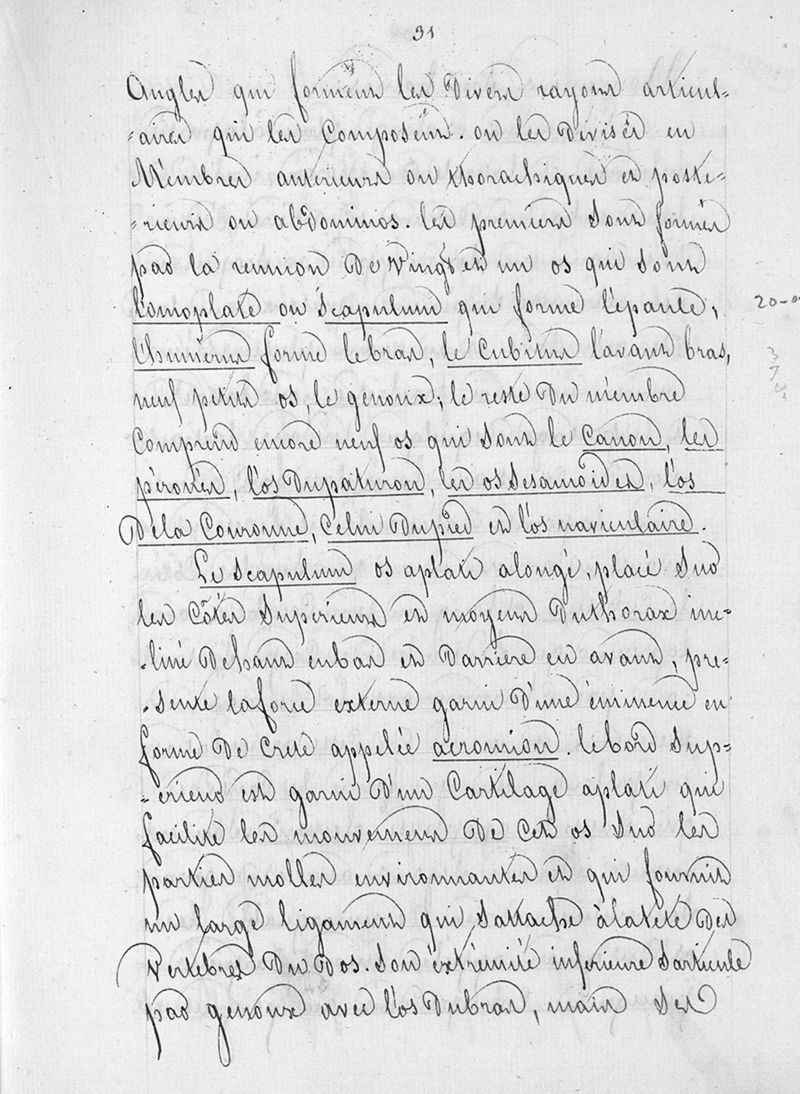 31
Angles qui forment les Divers rayons articul-
-aires qui les Composent. on les Divisés en
Mémbres antérieurs ou thorachiques et posté-
-rieurs ou abdominos. les premiers sont formés
par la reunion De Vingt et un os qui sont
l'omoplate ou scapulum qui forme l'épaule,
l'humérus forme lebras, le Cubitus l'avant bras,
neuf petits os, le genoux; le reste Du mémbre
Comprend encore neuf os qui sont le Canon, les
péronés, l'os Dupaturon, les os Sesamoïdes, l'os
De la Couronne, Celui Dupied et l'os naviculaire.
Le Scapulum os aplati alongé, placé sur
les Côtés Superieurs et moyens Duthorax inc-
-liné Dehaut enbas et Darriere en avant, pre-
-sente laforce externe garni D'une éminence en
forme De Crete appelée acromion. le bord Sup-
-erieur est garni D'un Cartilage aplati qui
facilite les mouvements De Cet os Sur les
parties molles environnantes et qui fournit
un large ligament qui S'attache àlateté Des
Vertebres Du Dos. Son éxtrémité inferieure S'articule
par genoux avec l'os Dubras, mais Ses
20-
3
7
4